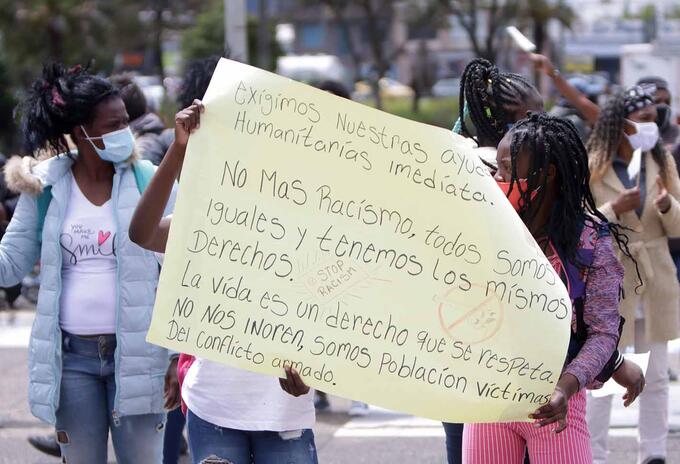 exigimos Nuestras ayu
Humanitarías imediata.
NO Mas Racismo, todos somos
Iguales y tenemos los mismos
Derechos.
STOP
RACISM
La vida es un derecho que se respeta.
NO NOS INOREN, somos Población víctimas
Del conflicto armado.
YOU
MAKE ME
Smile